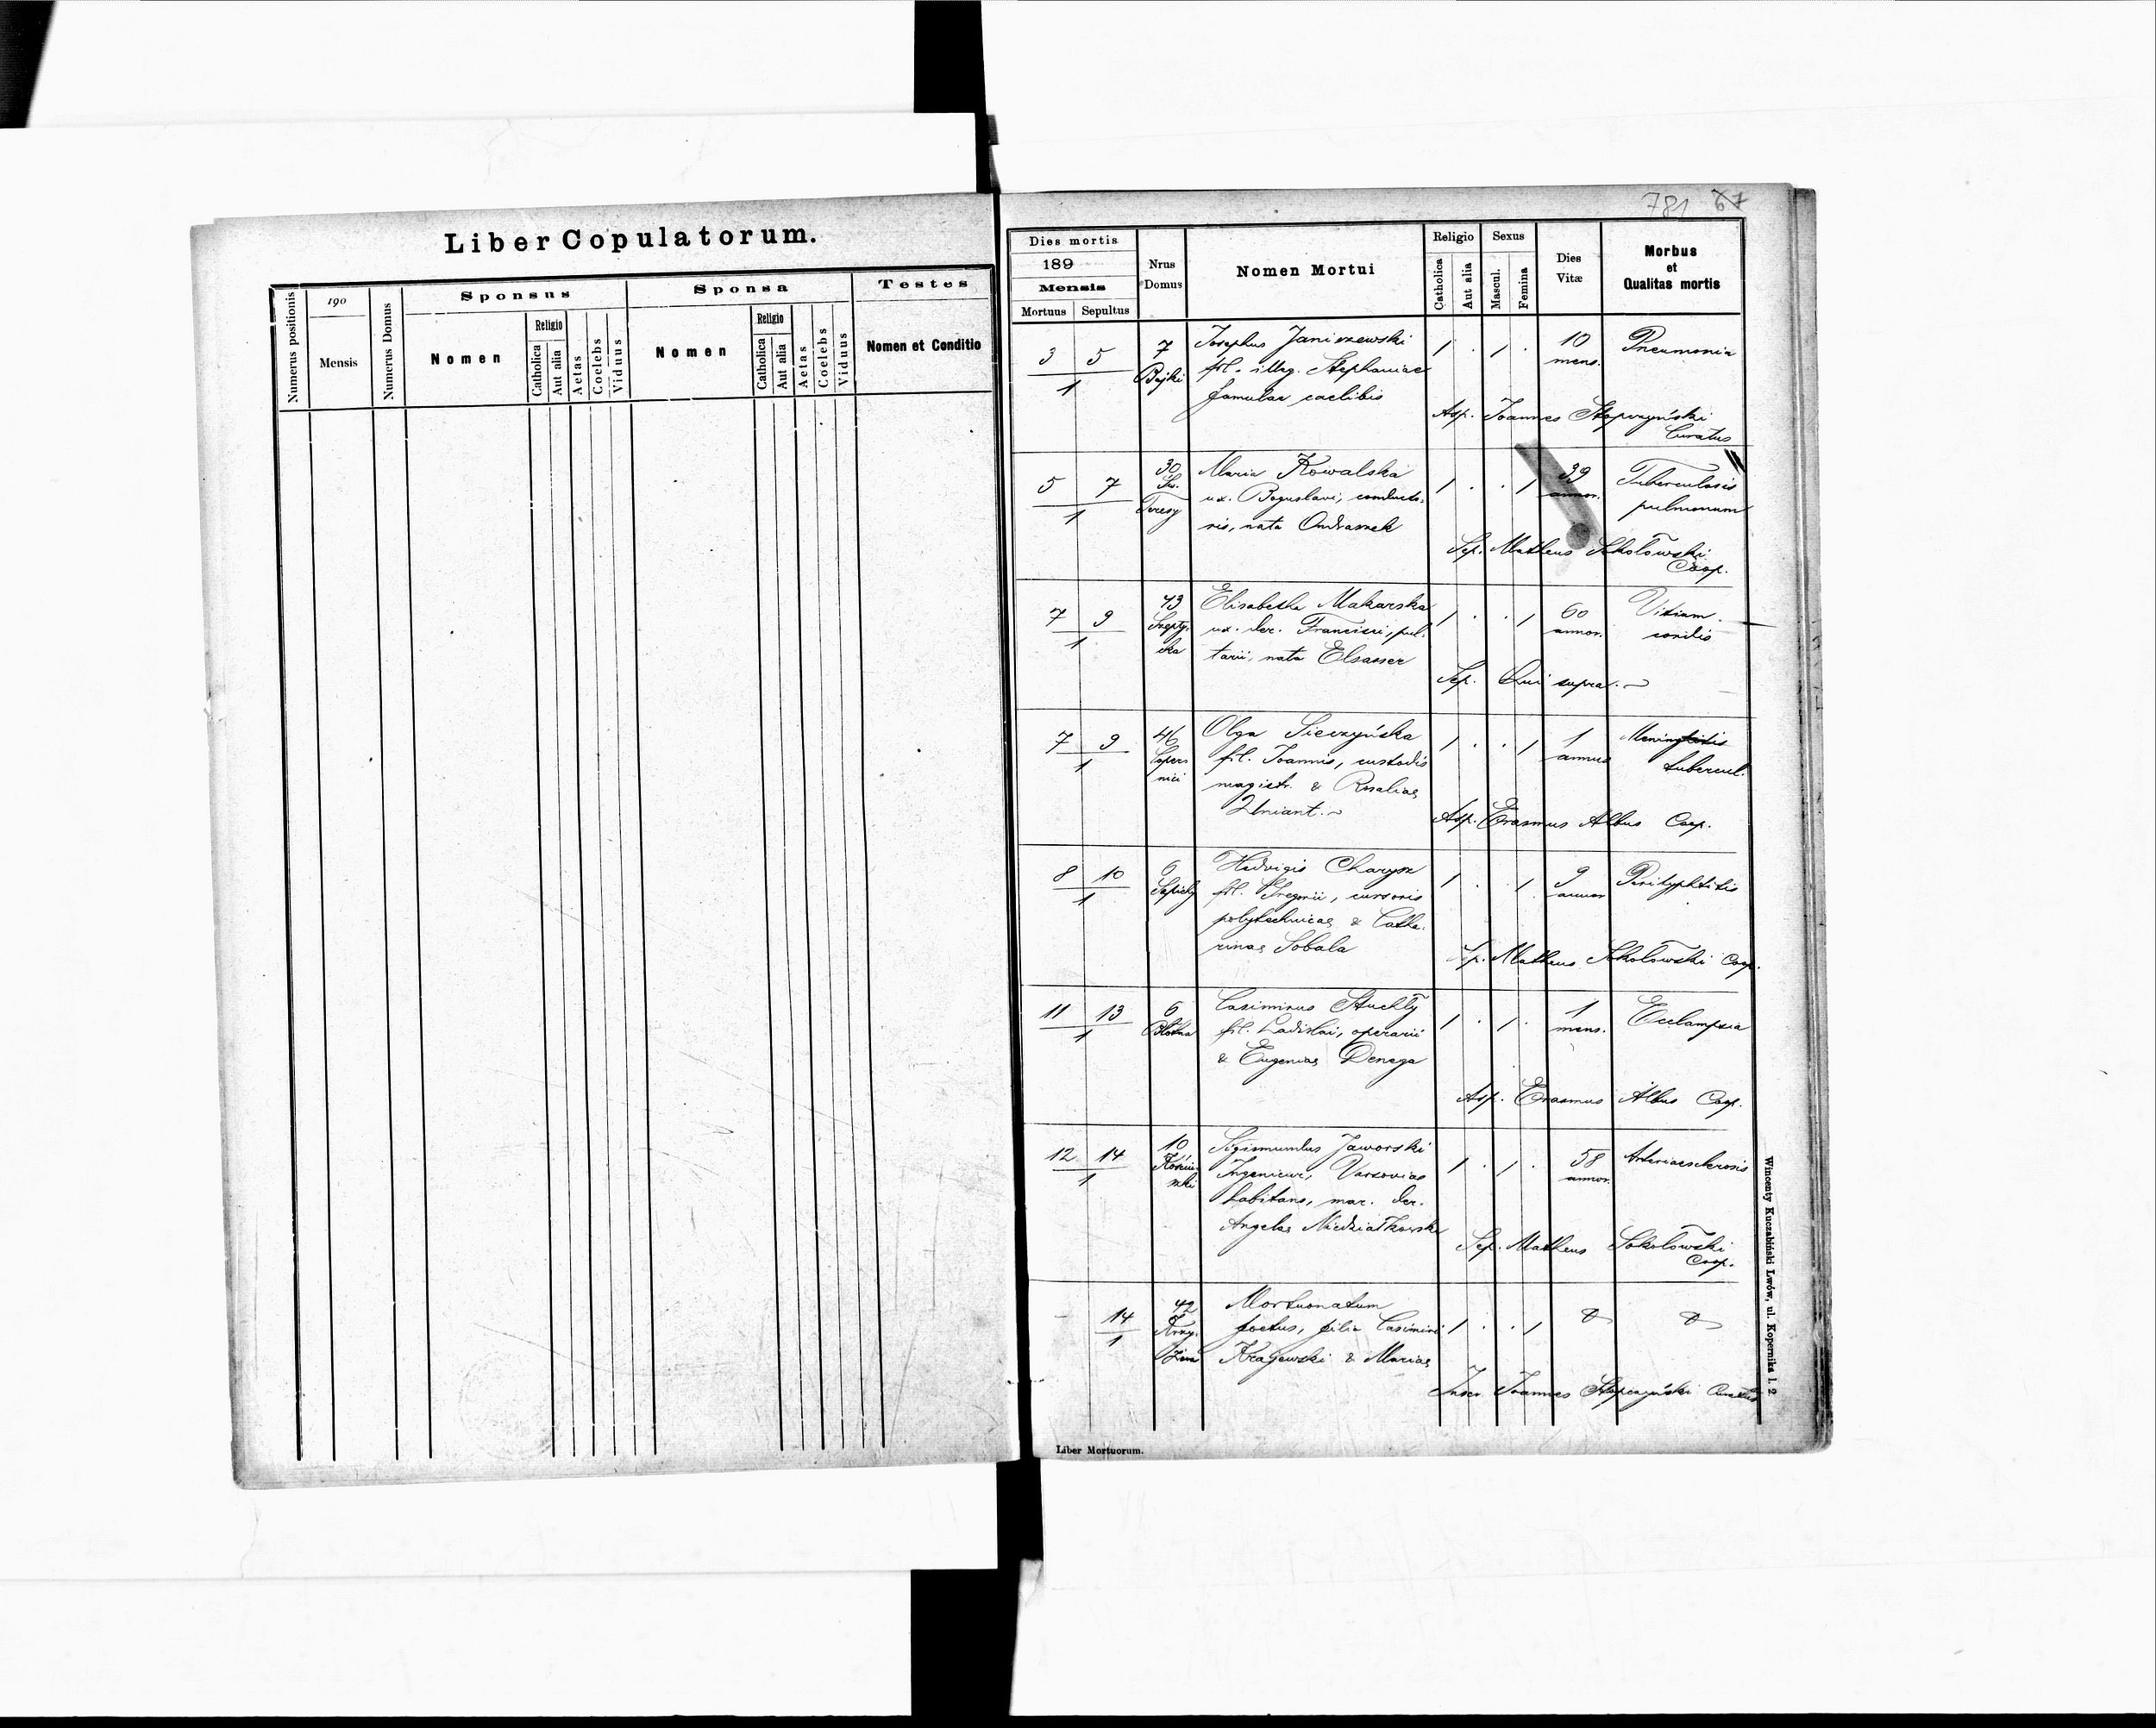 Liber Copulatorum.
Numerus positionis
190
Mensis
Numerus Domus
Sponsus
Nomen
Religio
Catholica
Aut alia
Aetas
Coelebs
Viduus
Sponsa
Nomen
Religio
Catholica
Aut alia
Aetas
Coelebs
Viduus
Testes
Nomen et Conditio
781 67
Dies mortis
189
Mensis
Mortuus Sepultus
Nrus
Domus
Nomen Mortui
Religio
Catholica
Aut alia
Sexus
Mascul.
Femina
Dies
Vitæ
Morbus
et
Qualitas mortis
3 5
1
7
Bajki
Josephus Janiszewski
fil. illeg. Stephaniae
famulae caelibis
1 . 1 .
10
mens.
Pneumonia
Asp. Joannes Stopczyński
Curatus
5 7
1
30
Św.
Teresy
Maria Kowalska
ux. Boguslavi, conducto-
ris, nata Ondraszek
1 . . 1
39
annor.
Tuberculosis
pulmonum
Sep. Matheus Sokołowski
Coop.
7 9
1
Szepty-
cka
Elisabetha Makarska
ux. der. Francisci, pul-
tarii, nata Elsasser
1 . . 1
60
annor.
Vitium
cordis
Sep. Qui supra.
7 9
1
46
Coper-
nici
Olga Sieczyńska
fil. Joannis, custodis
magistr. & Rosaliae
Uniant.
1 . . 1
1
annus
Meningitis
tubercul.
Asp. Erasmus Albus Coop.
8 10
1
6
Sapiehy
Hedvigis Charysz
fil. Gregorii, cursoris
polytechnicae & Catha-
rinae Sobala
1 . 1
9
annor
Perityphlitis
Sep. Matheus Sokołowski Coop.
11 13
1
6
Błotna
Casimirus Stuchlý
fil. Ladislai, operarii
& Eugeniae Denega
1 . 1 .
1
mens.
Eclampsia
Asp. Erasmus Albus Coop.
12 14
1
10
Sigismundus Jaworski
Ingenieur, Varsoviae
habitans, mar. der.
Angelae Niedziałkowska
1 . 1 .
58
annor.
Arteriaesclerosis
Sep. Matheus Sokołowski
Coop.
- 14
1
42
Krzy-
żowa
Mortuonatum
foetus, filia Casimiri
Krajewski & Mariae
1 . . 1
Inscr. Joannes Stopczyński Curatus
Liber Mortuorum.
Wincenty Kuczabiński Lwów, ul. Kopernika l. 2